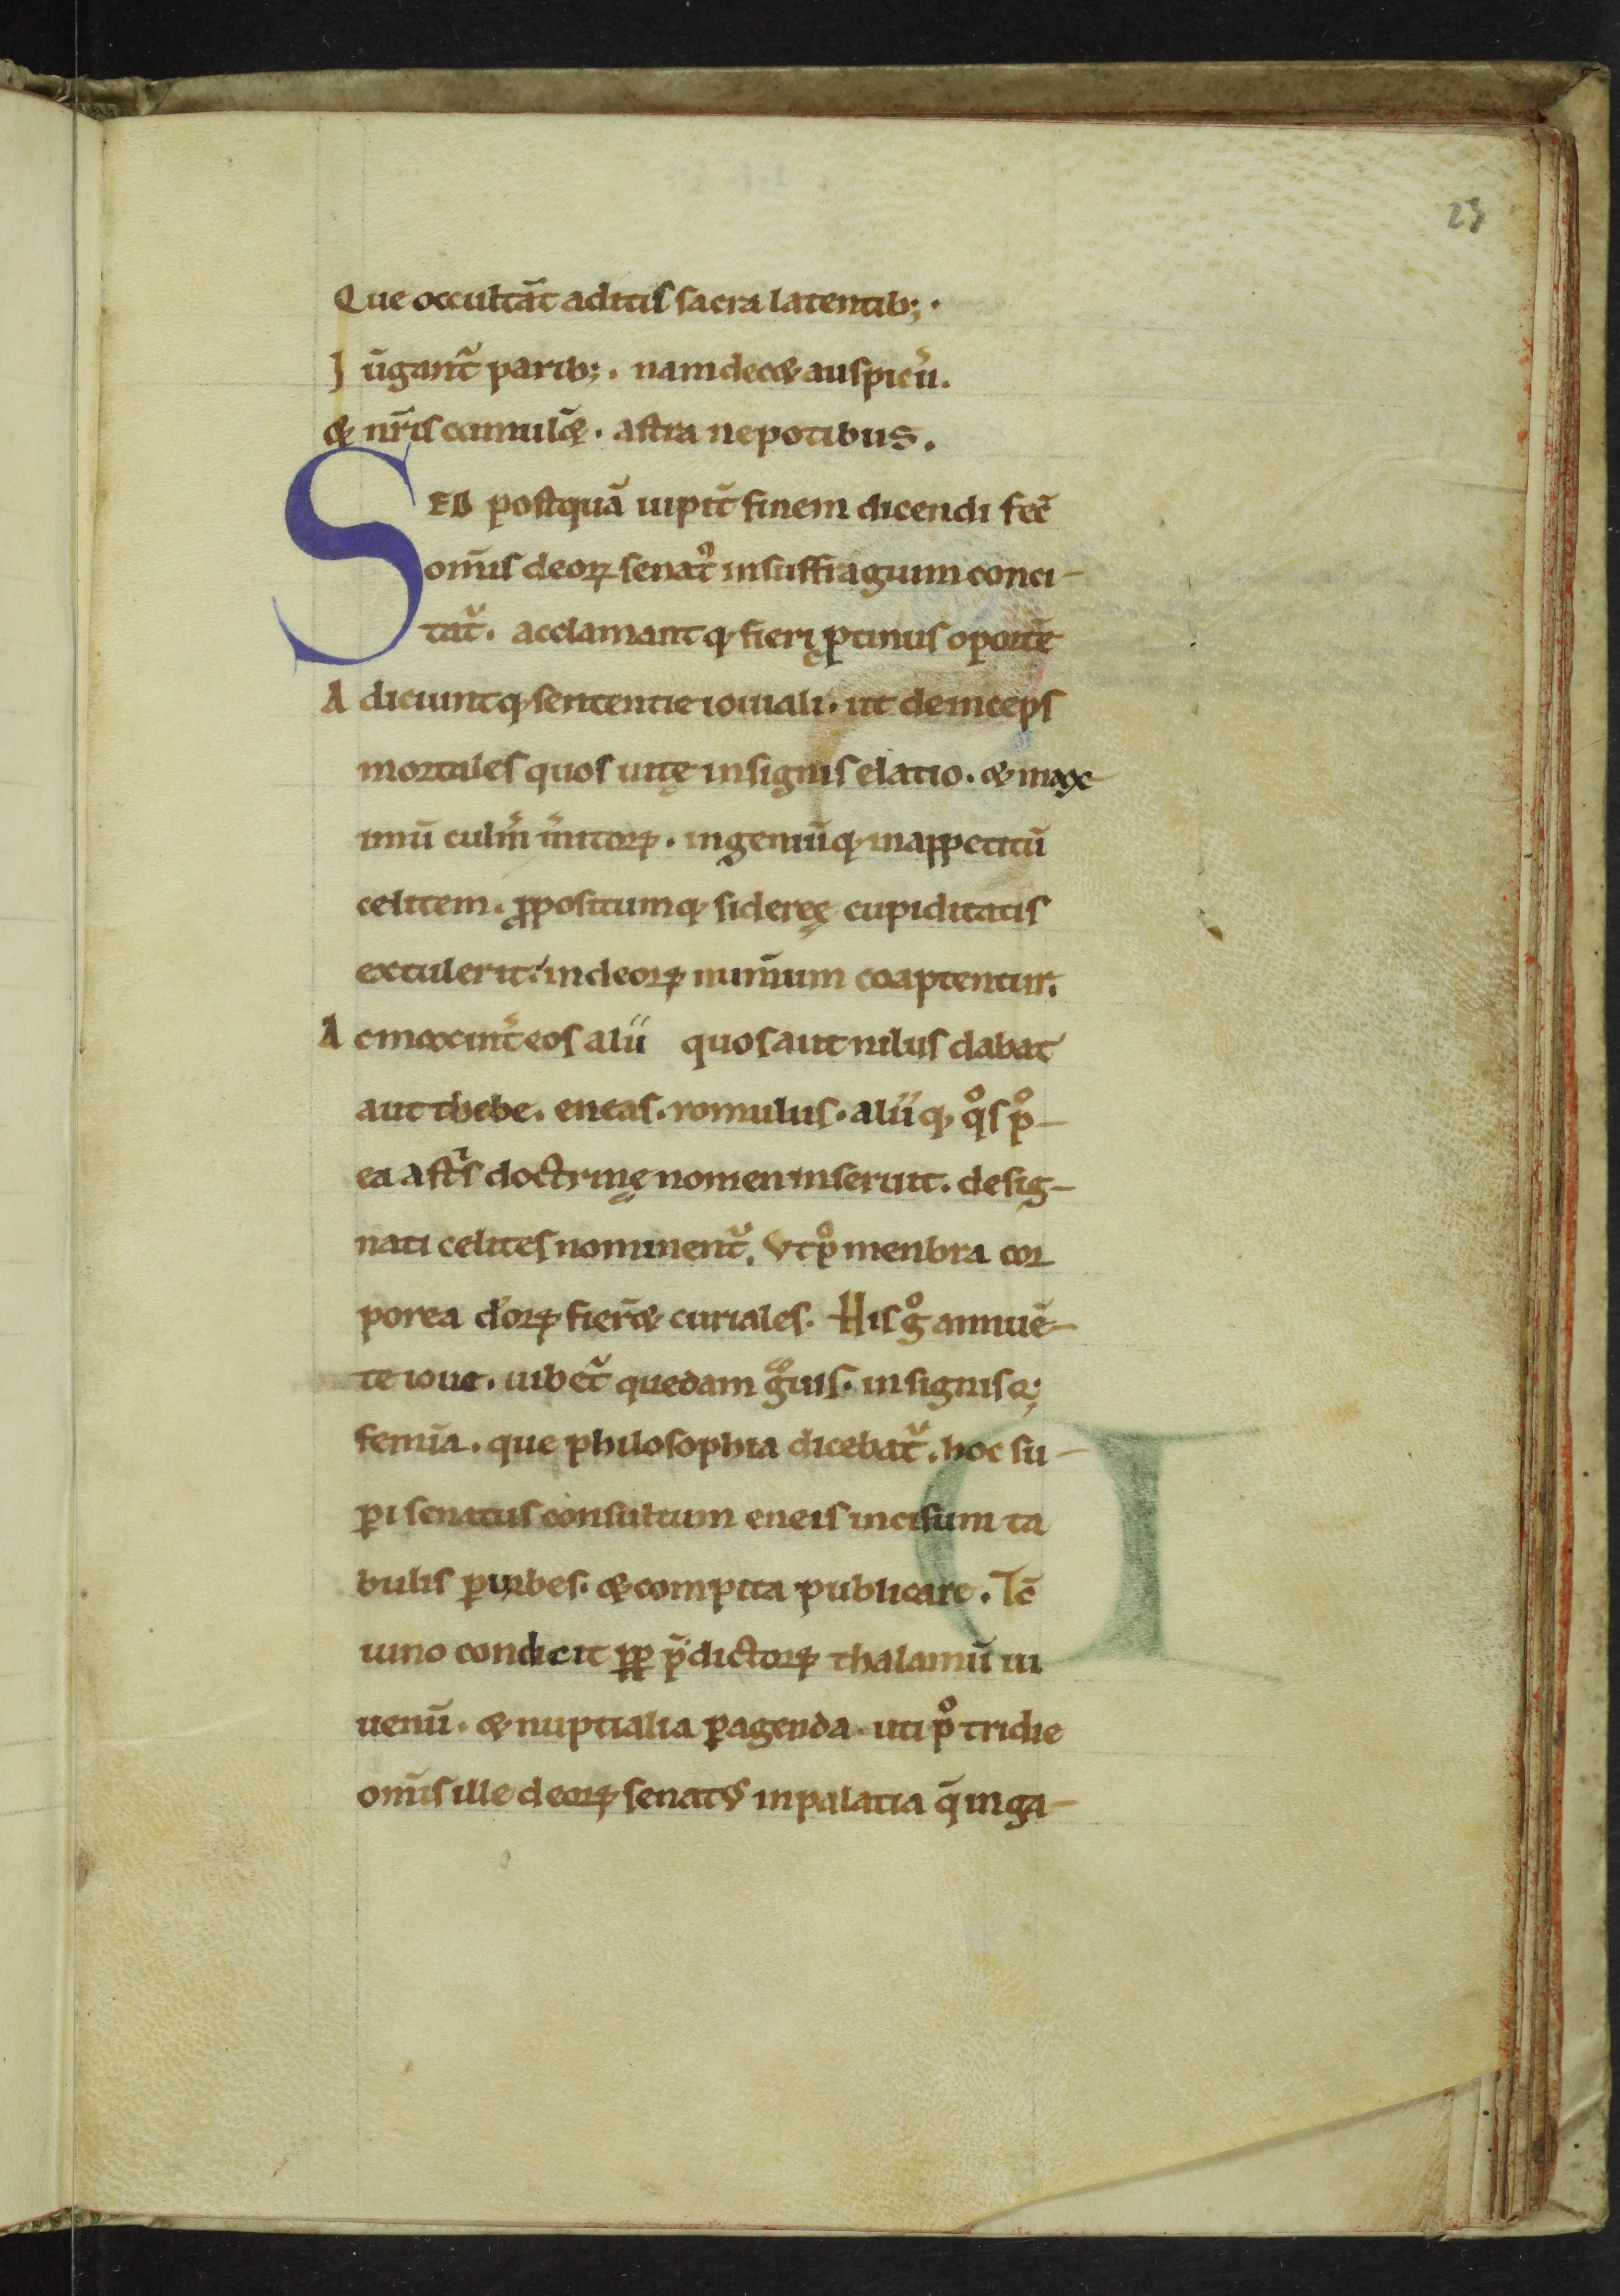 23
Que occultāt aditis sacra latentib;.
Jūgant᷑ parib;. nam decet auspiciū.
& nr̄is cumulēt. astra nepotibus.
SED postquā iupit᷑ finem dicendi fec̄
om̄is deoꝝ senat᷒ insuffragium conci-
tat᷑. acclamantq; fieri ꝓtinus oportē
Adiciuntq; sententie iouiali. ut deinceps
mortales quos uitę insignis elatio. & max
imū culm̄ m̄itoꝝ. ingeniūq; inappetitū
celitem. ꝓpositumq; sidereę cupiditatis
extulerit. indeoꝝ num̄um coaptentur.
Ac mox int᷑ eos alii quos aut nilus dabat
aut thebe. eneas. romulus. aliiq; qͦs pͦ-
ea astⁱs doctrinę nomen inseruit. desig-
nati celites nominent᷑. Vt pͦ menbra cor
porea d'oꝝ fier̄& curiales. His gͦ annuē-
te ioue. iubet᷑ quedam gͣuis. insignisq;
femīa. que philosophia dicebat᷑. hoc su-
ꝑi senatus consultum eneis incisum ta
bulis ꝑ urbes. & compita publicare. Tc̄
iuno condicit ꝓꝑ p̄dictoꝝ thalamū iu
uenū. & nuptialia ꝑagenda. uti pͦ tridie
om̄is ille deoꝝ senatꝰ inpalatia q̄ inga-